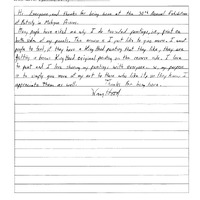 Hi Everyone, and thanks for being here at the 30th Annual Exhibition
of Artistry in Michigan Prisons.
Many people have asked me why I do two-sided paintings, or, print on
both sides of my panels. The reason is I just like to give more. I want
people to feel, if they have a King Hood painting that they like, they are
getting a bonus King Hood original printing on the reverse side. I love
to paint and I love sharing my paintings with everyone. So, my purpose
is to simply give more of my art to those who like it, so they know I
appreciate them as well. Thanks for being here.
King Hood